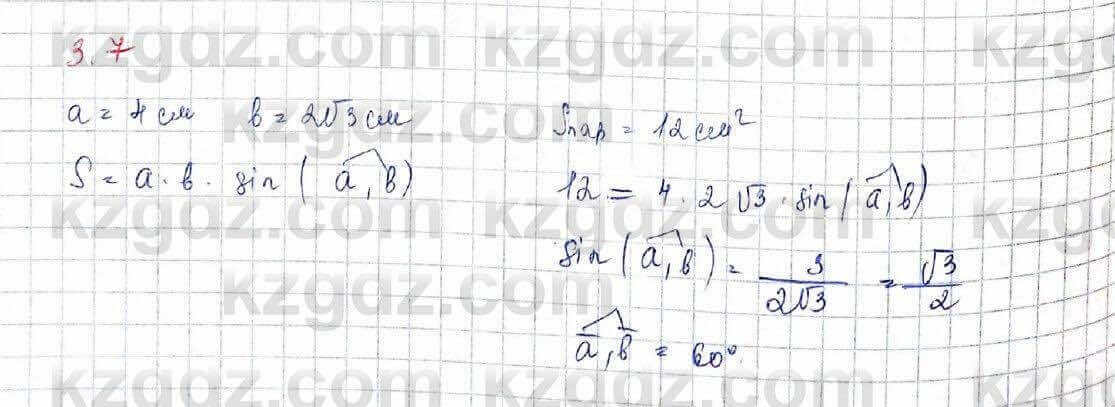 3.7
a = 4 см   b = 2√3 см
S = a · b · sin ( a, b )
Sпар = 12 см²
12 = 4 · 2√3 · sin ( a, b )
sin ( a, b ) = 3/2√3 = √3/2
a, b = 60°.
kzgdz.com kzgdz.com kzgdz.com
kzgdz.com kzgdz.com
kzgdz.com kzgdz.com kzgdz.com
kzgdz.com kzgdz.com
kzgdz.com kzgdz.com kzgdz.com